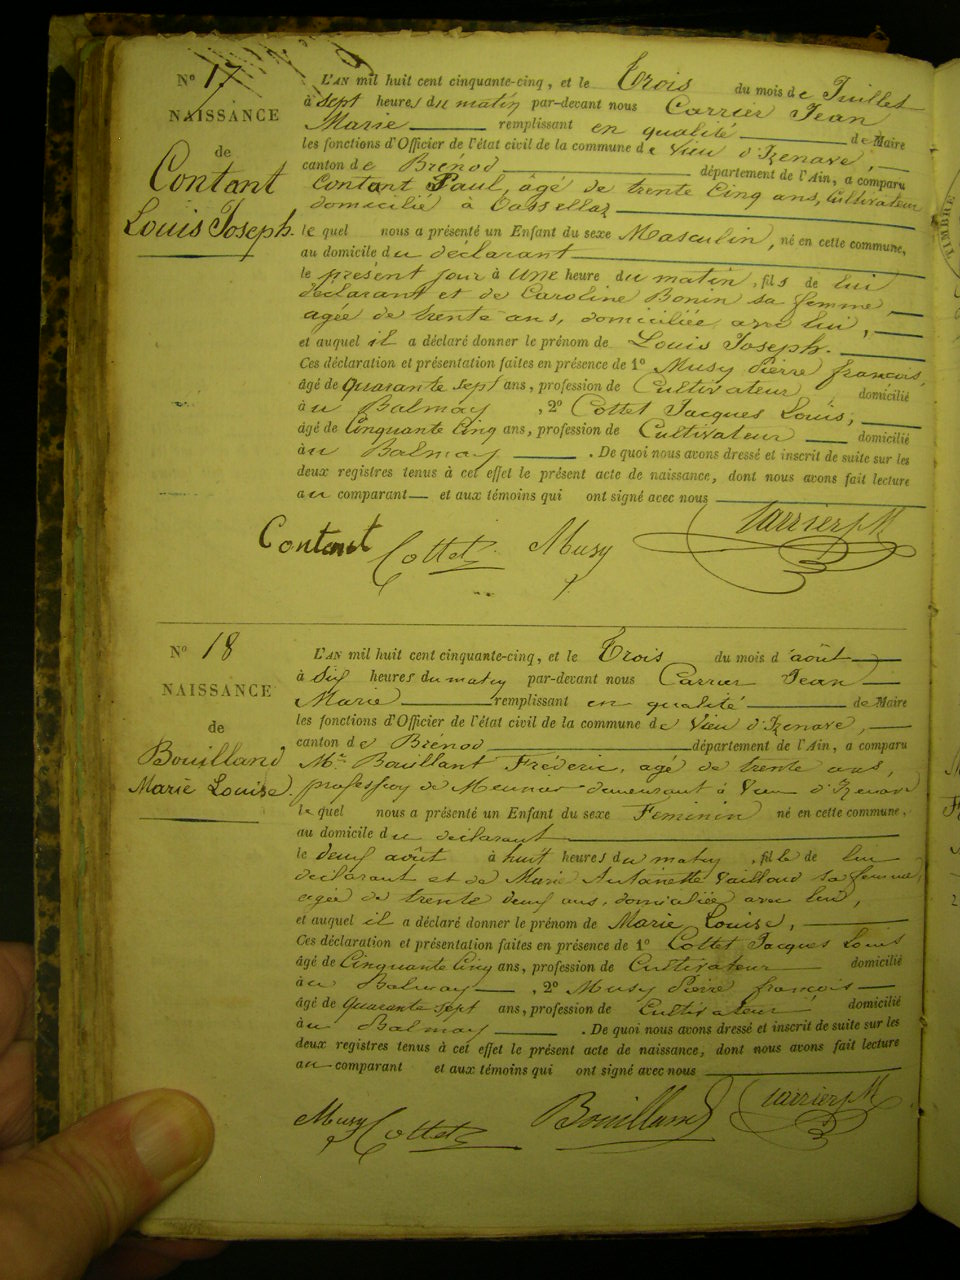 No 17
NAISSANCE
de
Contant
Louis Joseph.
L'AN mil huit cent cinquante-cinq, et le Trois du mois de Juillet
à sept heures du matin par-devant nous Carrier Jean
Marie remplissant en qualité de Maire
les fonctions d'Officier de l'état civil de la commune de Vieu d'Izenave,
canton de Brénod département de l'Ain, a comparu
Contant Paul, âgé de trente Cinq ans, Cultivateur
domicilié à
le quel nous a présenté un Enfant du sexe Masculin, né en cette commune,
au domicile du déclarant
le présent jour à une heure du matin, fils de lui
déclarant et de Caroline Bonin sa femme
agée de trente ans, domiciliée avec lui,
et auquel il a déclaré donner le prénom de Louis Joseph.
Ces déclaration et présentation faites en présence de 1o Musy Pierre françois,
âgé de Quarante sept ans, profession de Cultivateur domicilié
à u Balmay, 2o Cottet Jacques Louis,
âgé de Cinquante Cinq ans, profession de Cultivateur domicilié
à u Balmay. De quoi nous avons dressé et inscrit de suite sur les
deux registres tenus à cet effet le présent acte de naissance, dont nous avons fait lecture
au comparant et aux témoins qui ont signé avec nous
Contant Cottet Musy Carrier JM
No 18
NAISSANCE
de
Bouilland
Marie Louise.
L'AN mil huit cent cinquante-cinq, et le Trois du mois d'août
à Six heures du matin par-devant nous Carrier Jean
Marie remplissant en qualité de Maire
les fonctions d'Officier de l'état civil de la commune de Vieu d'Izenave,
canton de Brénod département de l'Ain, a comparu
Mr Bouillant Fréderic, agé de trente ans,
profession de Meunier demeurant à Vieu d'Izenave
le quel nous a présenté un Enfant du sexe Feminin né en cette commune,
au domicile du declarant
le deux août à huit heures du matin, fille de lui
declarant et de Marie Antoinette Vailloud sa femme,
agée de trente deux ans, domiciliée avec lui,
et auquel il a déclaré donner le prénom de Marie Louise,
Ces déclaration et présentation faites en présence de 1o Cottet Jacques Louis
âgé de Cinquante Cinq ans, profession de Cultivateur domicilié
à u Balmay, 2o Musy Pierre françois
âgé de quarante sept ans, profession de Cultivateur domicilié
à u Balmay. De quoi nous avons dressé et inscrit de suite sur les
deux registres tenus à cet effet le présent acte de naissance, dont nous avons fait lecture
au comparant et aux témoins qui ont signé avec nous
Musy Cottet Bouilland Carrier JM
TIMBRE